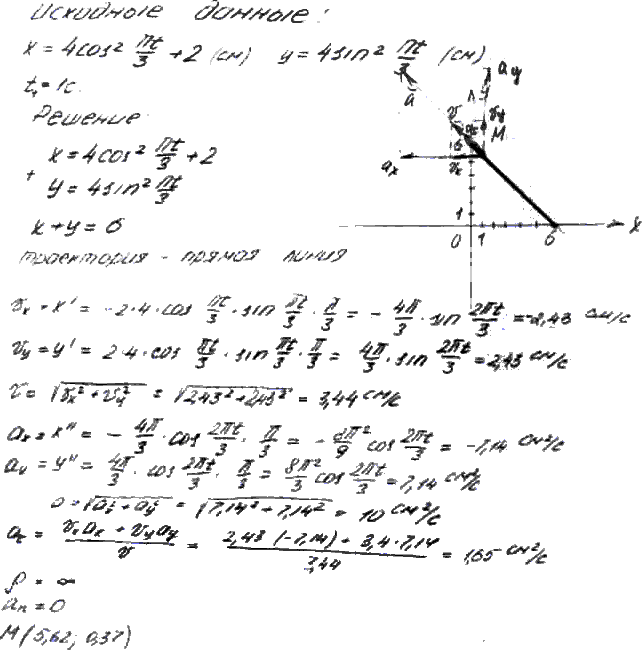 Исходные данные:
x = 4cos² πt/3 + 2 (см)   y = 4sin² πt/3 (см)
t₁ = 1c.
Решение:
x = 4cos² πt/3 + 2
+
y = 4sin² πt/3
x + y = 6
траектория - прямая линия
a ay
a v vy
M
6
ax vx
1
0 1 6 x
vx = x' = -2·4·cos πt/3 · sin πt/3 · π/3 = - 4π/3 · sin 2πt/3 = -2,43 см/с
vy = y' = 2·4·cos πt/3 · sin πt/3 · π/3 = 4π/3 · sin 2πt/3 = 2,43 см/с
v = √vx² + vy² = √2,43² + 2,43² = 3,44 см/с
ax = x'' = - 4π/3 · cos 2πt/3 · π/3 = - 8π²/9 cos 2πt/3 = -7,14 см²/с
ay = y'' = 4π/3 · cos 2πt/3 · π/3 = 8π²/3 cos 2πt/3 = 7,14 см²/с
a = √ax² + ay² = √7,14² + 7,14² = 10 см²/с
aτ = vx ax + vy ay / v = 2,43 (-7,14) + 3,4·7,14 / 3,44 = 1,65 см²/с
ρ = ∞
an = 0
M (5,62; 0,37)